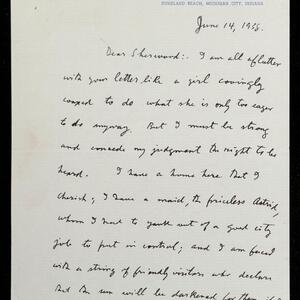 DUNELAND BEACH, MICHIGAN CITY, INDIANA
June 14, 1958.
Dear Sherwood:- I am all aflutter
with your letter like a girl covingly
coaxed to do what she is only too eager
to do anyway. But I must be strong
and concede my judgment the right to be
heard. I have a home here that I
cherish; I have a maid, the priceless Astrid,
whom I had to yank out of a good city
job to put in control; and I am faced
with a string of friendly visitors who declare
that the sun will be darkened for them if